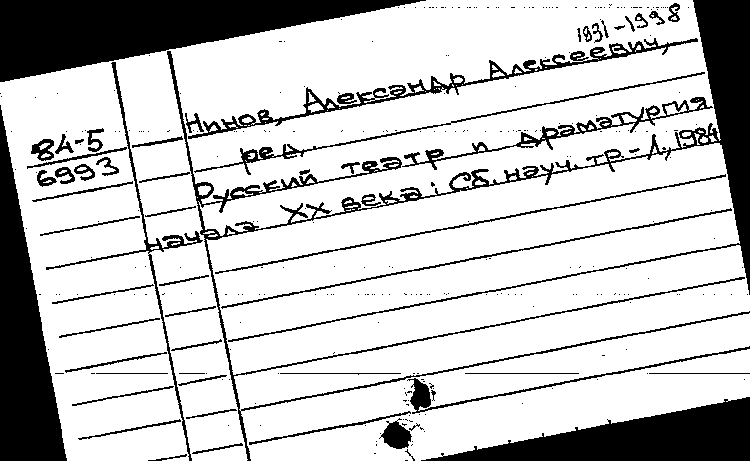 1931-1998
Нинов, Александр Алексеевич,
84-5
6993
ред.
Русский театр и драматургия
начала XX века: Сб. науч. тр - Л., 1984